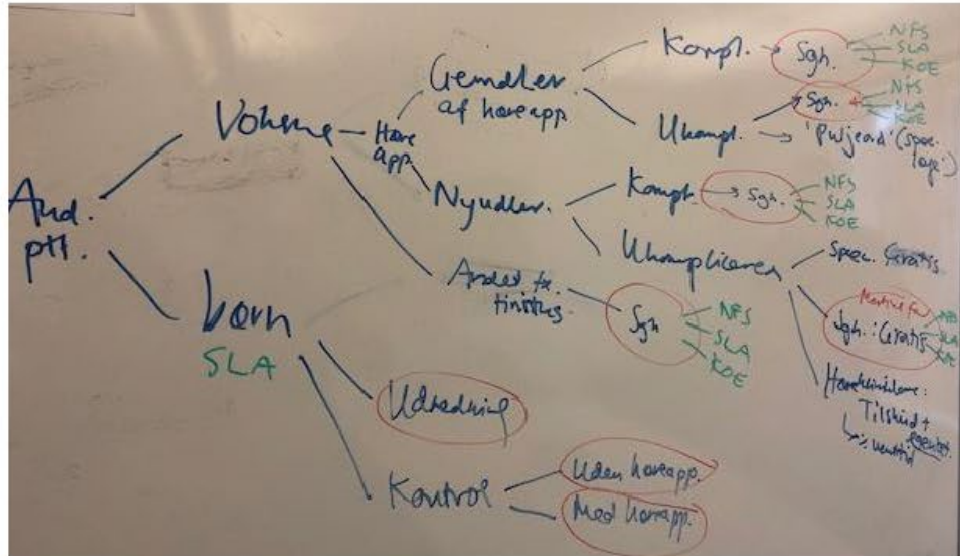 Aud.
ptt.
Voksne
Høre
app.
Gendler.
af høreapp.
Kompl.
Sgh.
NFS
SLA
KOE
Ukompl.
Sgh.
NFS
SLA
KOE
Nyudlev.
Kompl.
Sgh.
NFS
SLA
KOE
Ukompliceret
Spec. Gratis.
Sgh.: Gratis
SLA
KOE
Tilskud +
Andet fx.
tinitus.
Sgh
NFS
SLA
KOE
børn
SLA
Udredning
Kontrol
Uden høreapp.
Med høreapp.